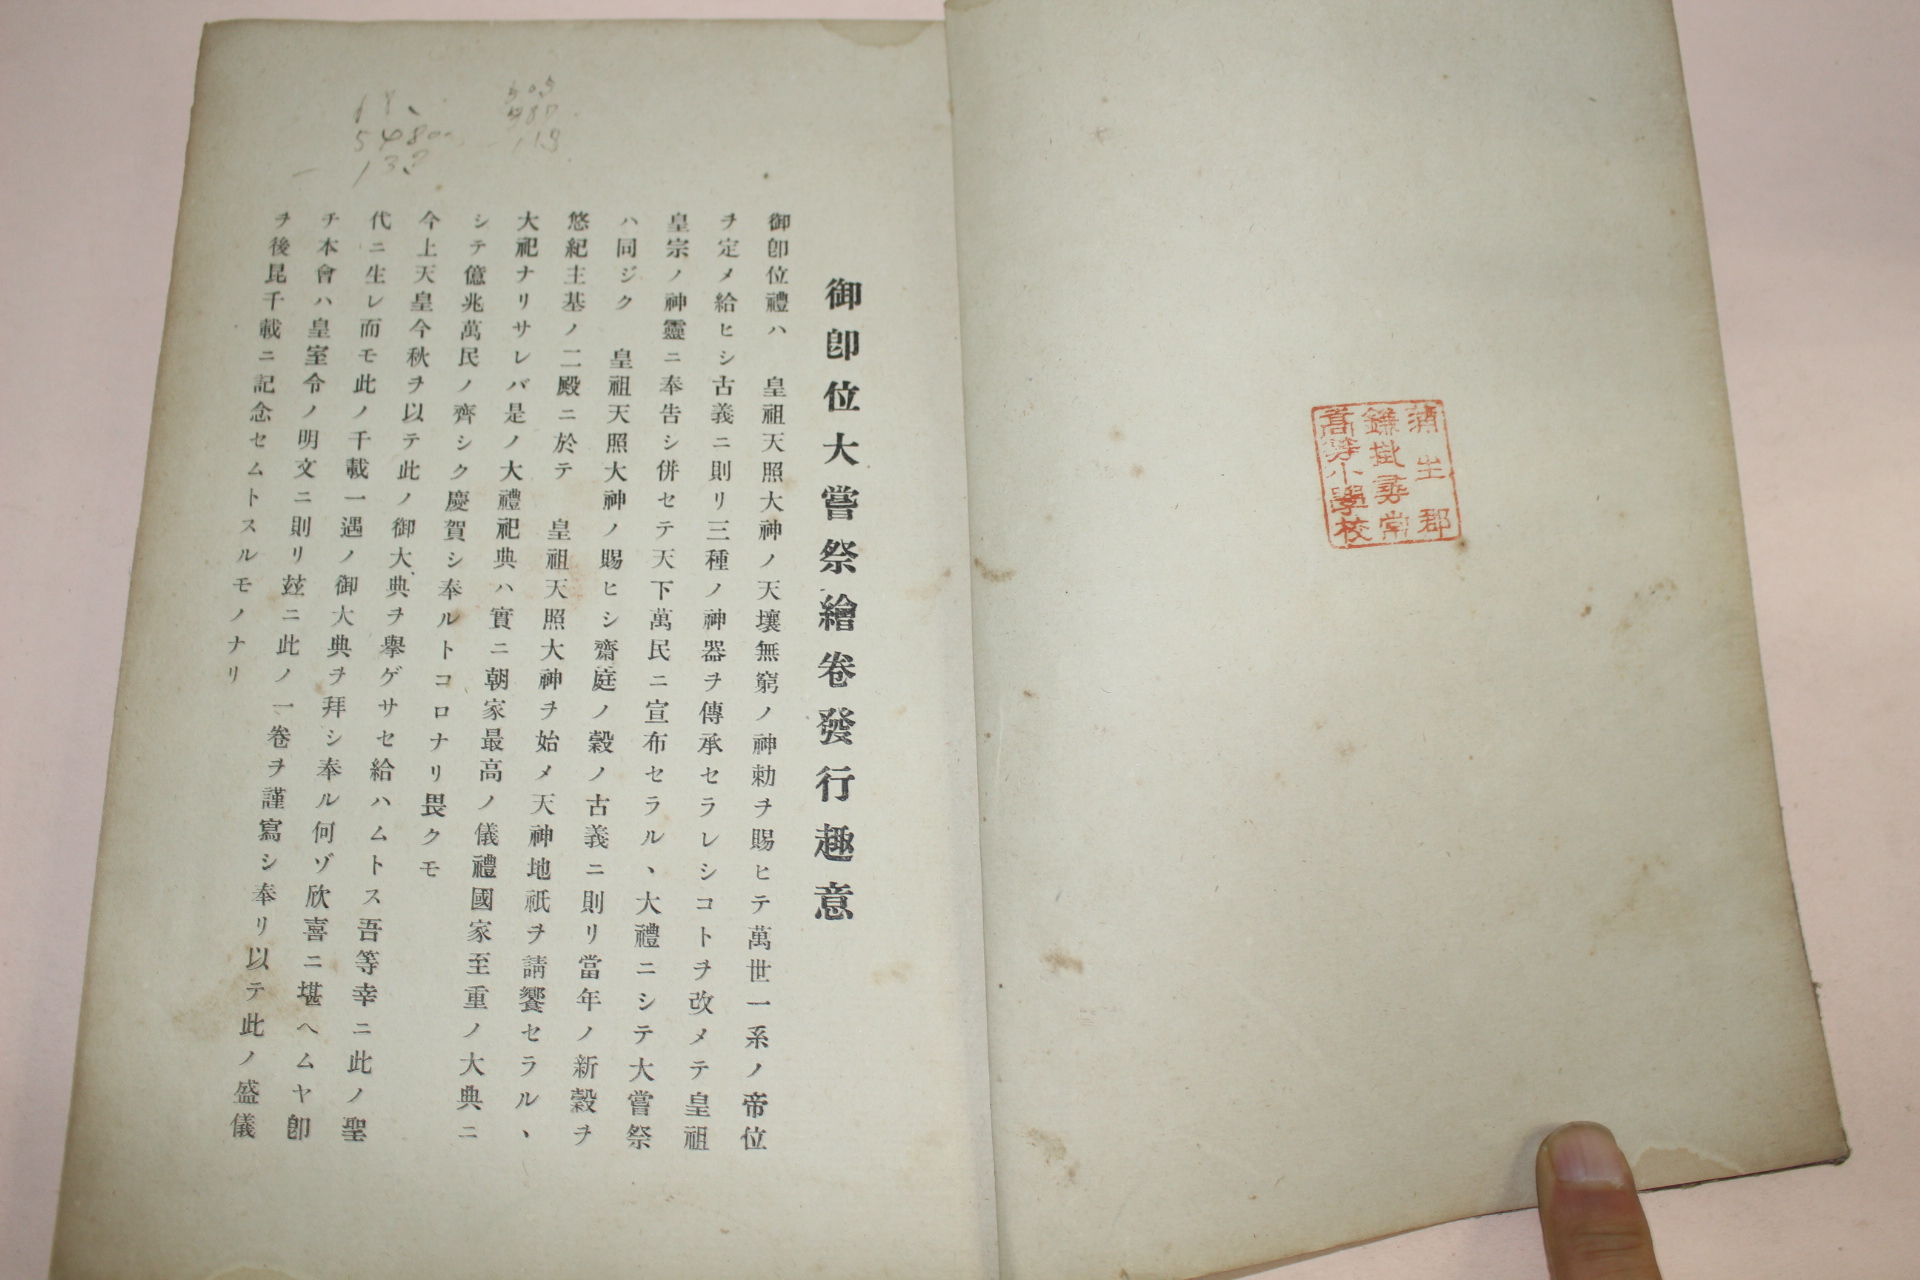 蒲生郡
鎌掛尋常
高等小學校
御卽位大嘗祭繪卷發行趣意
御卽位禮ハ　皇祖天照大神ノ天壤無窮ノ神勅ヲ賜ヒテ萬世一系ノ帝位
ヲ定メ給ヒシ古義ニ則リ三種ノ神器ヲ傳承セラレシコトヲ改メテ皇祖
皇宗ノ神靈ニ奉告シ併セテ天下萬民ニ宣布セラル、大禮ニシテ大嘗祭
ハ同ジク　皇祖天照大神ノ賜ヒシ齋庭ノ穀ノ古義ニ則リ當年ノ新穀ヲ
悠紀主基ノ二殿ニ於テ　皇祖天照大神ヲ始メ天神地祇ヲ請饗セラル、
大祀ナリサレバ是ノ大禮祀典ハ實ニ朝家最高ノ儀禮國家至重ノ大典ニ
シテ億兆萬民ノ齊シク慶賀シ奉ルトコロナリ畏クモ
今上天皇今秋ヲ以テ此ノ御大典ヲ擧ゲサセ給ハムトス吾等幸ニ此ノ聖
代ニ生レ而モ此ノ千載一遇ノ御大典ヲ拜シ奉ル何ゾ欣喜ニ堪ヘムヤ卽
チ本會ハ皇室令ノ明文ニ則リ玆ニ此ノ一卷ヲ謹寫シ奉リ以テ此ノ盛儀
ヲ後昆千載ニ記念セムトスルモノナリ
54800